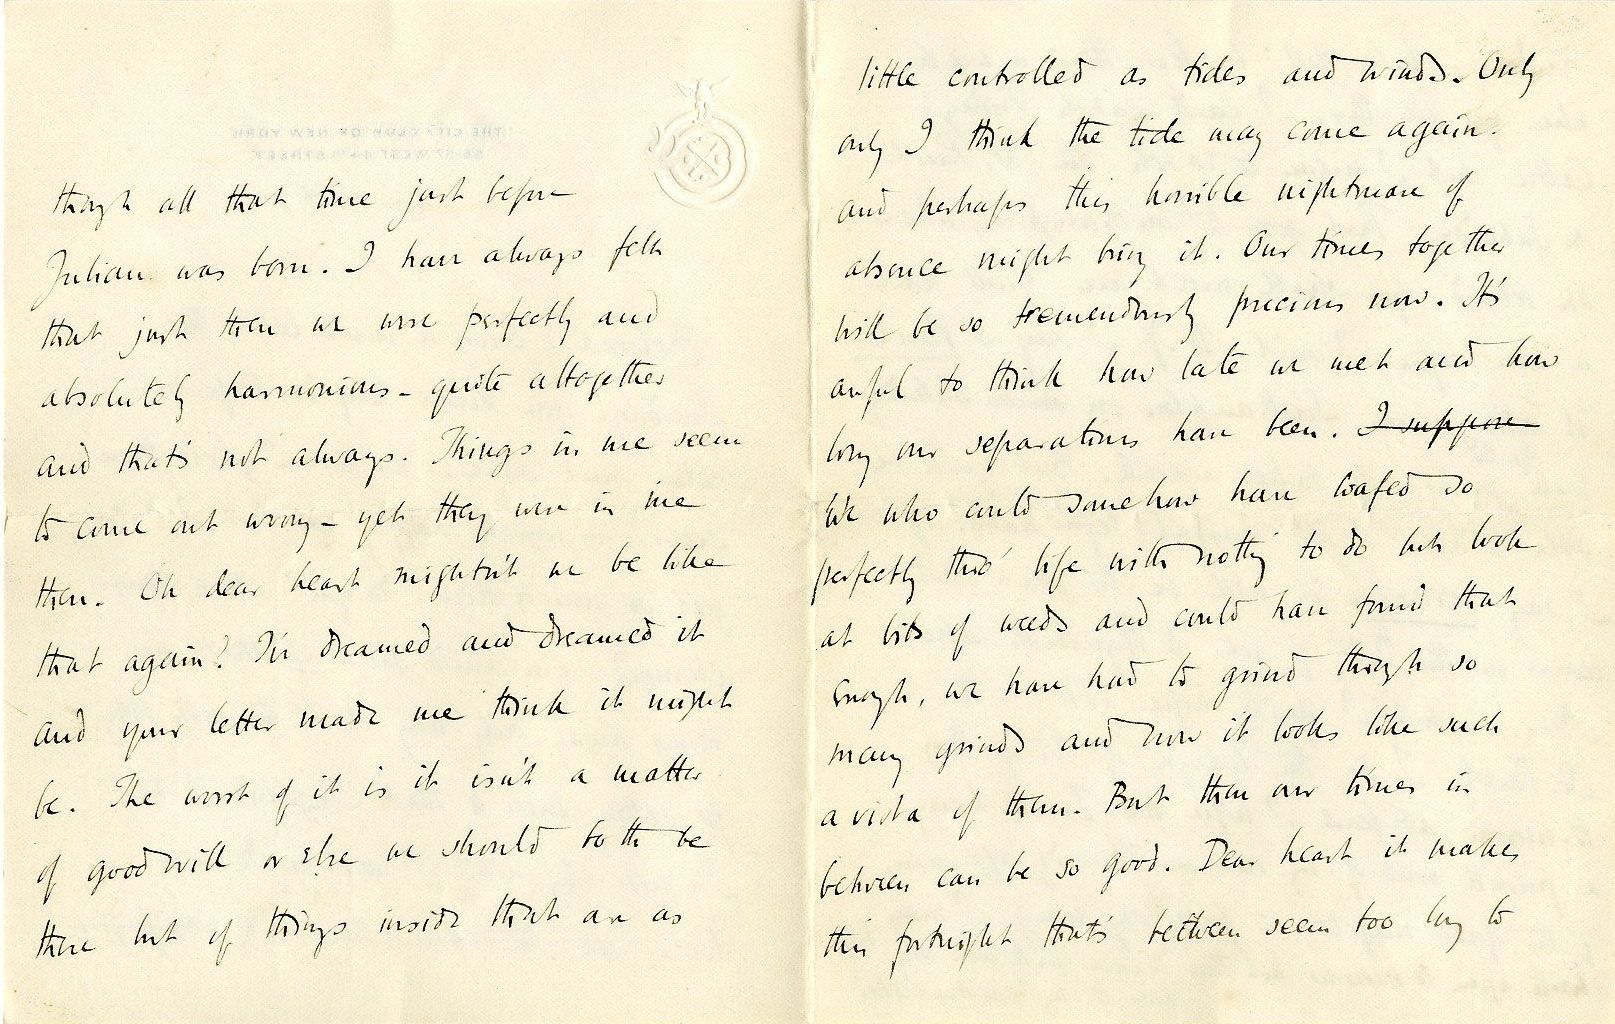 THE CITY CLUB OF NEW YORK
55-57 WEST 44TH STREET
though all that time just before
Julian was born. I have always felt
that just then we were perfectly and
absolutely harmonious – quite altogether
and that's not always. Things in me seem
to come out wrong – yet they were in me
then. Oh dear heart mightn't we be like
that again? I've dreamed and dreamed it
and your letter made me think it might
be. The worst of it is it isn't a matter
of good will or else we should both be
there but of things inside that are as
little controlled as tides and winds. Only
only I think the tide may come again.
and perhaps this horrible nightmare of
absence might bring it. Our times together
will be so tremendously precious now. It's
awful to think how late we met and how
long our separations have been. I suppose
We who could somehow have loafed so
perfectly thro' life with nothing to do but look
at bits of weeds and could have found that
enough, we have had to grind through so
many grinds and now it looks like such
a vista of them. But then our times in
between can be so good. Dear heart it makes
this fortnight that's between seem too long to